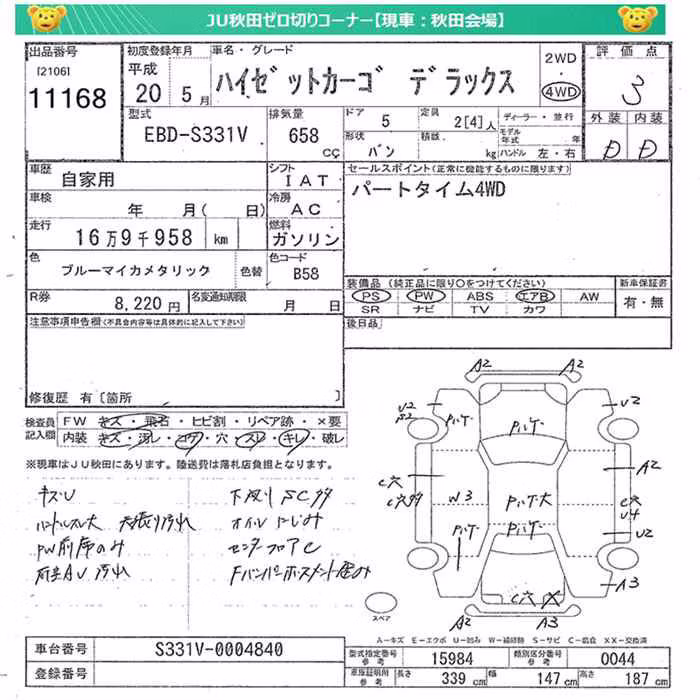 JU秋田ゼロ切りコーナー【現車：秋田会場】
出品番号 初度登録年月 車名・グレード 2WD 評価点
[2106] 平成 ハイゼットカーゴ デラックス 4WD 3
11168 20 5月 外装 内装
型式 排気量 ドア 5 定員 2[4]人 ディーラー・並行 D D
EBD-S331V 658 cc 形状 バン 積載 kg モデル年式 年 ハンドル 左・右
車歴 自家用 シフト IAT セールスポイント(正常に機能するものに限ります)
車検 年 月( 日) 冷房 AC パートタイム4WD
走行 16万9千958 km 燃料 ガソリン
色 ブルーマイカメタリック 色替 色コード B58
装備品(純正品に限り○をつけてください) 新車保証書
PS PW ABS エアB AW 有・無
SR ナビ TV カワ
R券 8,220円 名変通知期限 月 日 後日品
注意事項申告欄(不具合内容等は具体的に記入して下さい)
修復歴 有〔箇所 〕
検査員記入欄 FW キズ・飛石・ヒビ割・リペア跡・×要
内装 キズ・汚レ・コゲ・穴・スレ・キレ・破レ
※現車はJU秋田にあります。陸送費は落札店負担となります。
キズU 下廻りSC多
ハンドルスレ大 天張り汚れ オイルにじみ
PW前席のみ センターフロアC
A2 A2
U2 U2
パケ パケ
A2
C穴 W3 パケ大 C穴
U4
パケ パケ U2
C穴 X A3
A2 A3
スペア
A－キズ E－エクボ U－凹み W－補修跡 S－サビ C－腐食 XX－交換済
車台番号 S331V-0004840
登録番号
型式指定番号 参考 15984 類別区分番号 参考 0044
車庫証明用 参考 長さ 339 cm 幅 147 cm 高さ 187 cm